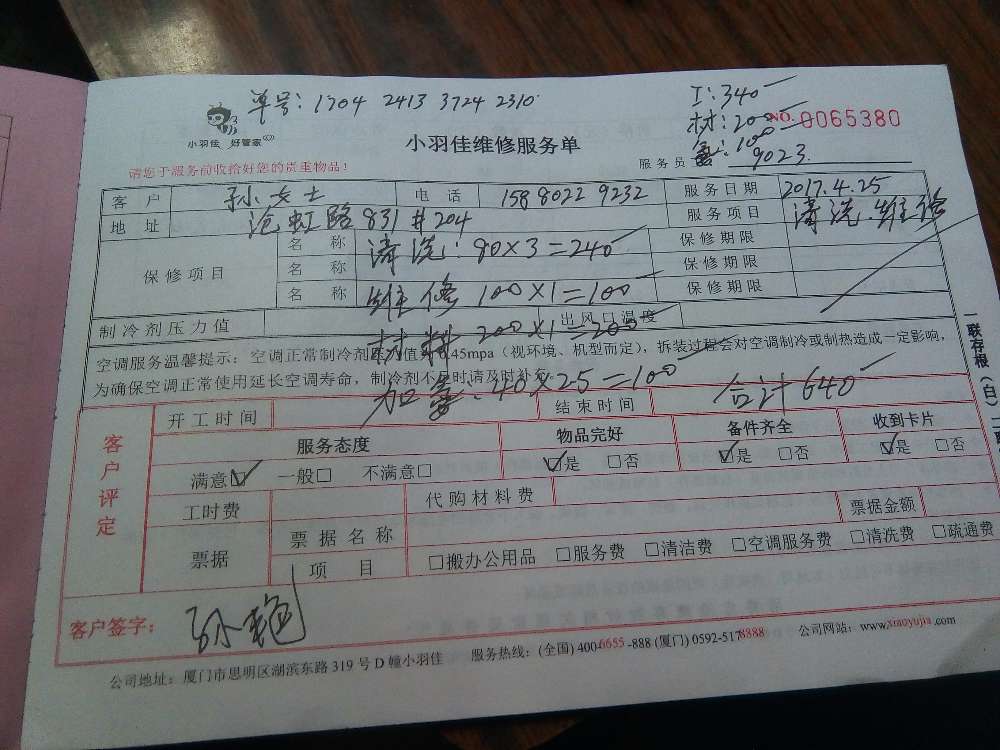 单号: 1704 2413 3724 2310
工: 340
材: 200
NO. 0065380
氟: 100
小羽佳 好管家
小羽佳维修服务单
服务员 9023
请您于服务前收拾好您的贵重物品!
客户 孙女士 电话 158 8022 9232 服务日期 2017.4.25
地址 沧虹路831#204 服务项目 清洗 维修
保修项目
名称 清洗: 80×3=240 保修期限
名称 保修期限
名称 维修 100×1=100 保修期限
制冷剂压力值 出风口温度
材料 200×1=200
空调服务温馨提示: 空调正常制冷剂压力值 0.45mpa (视环境、机型而定), 拆装过程会对空调制冷或制热造成一定影响,
为确保空调正常使用延长空调寿命, 制冷剂不足时请及时补充。
加氟: 40×2.5=100
合计640
一联存根(白)
客户评定
开工时间 结束时间
服务态度 物品完好 备件齐全 收到卡片
满意☑ 一般□ 不满意□ ☑是 □否 ☑是 □否 ☑是 □否
工时费 代购材料费
票据 票据名称 票据金额
项目 □搬办公用品 □服务费 □清洁费 □空调服务费 □清洗费 □疏通费
客户签字: 孙艳
公司地址: 厦门市思明区湖滨东路 319 号 D 幢小羽佳 服务热线: (全国) 400-6655-888 (厦门) 0592-5178888 公司网站: www.xiaoyujia.com